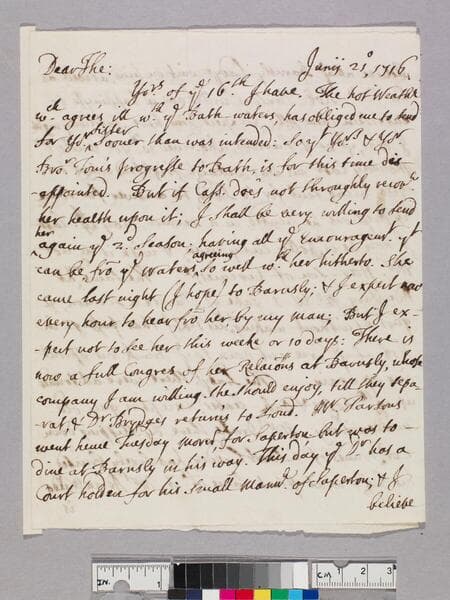 Dear The: Junij 21º, 1716
Yors of ye 16th I have. The hot Weather
wch agrees ill wth ye Bath waters, has obliged me to send
for Yor Sister sooner than was intended: so yt Yors & Yor
Bror Tom's progresse to Bath, is for this time dis-
-appointed. But if Cass. does not throughly recovr
her health upon it; I shall be very willing to send
her again ye 2d Season: having all ye Encouragemt yt
can be fro ye waters agreeing so well wth her hitherto. She
came last night (I hope) to Barnsly; & I expect now
every hour to hear fro her by my man; But I ex-
-pect not to see her this weeke or 10 days: There is
now a full Congres of her Relacons at Barnsly, whose
company I am willing she should enjoy, till they sepa-
rat, & Dr Brydges returns to Lond. Mr Parsons
went hence Tuesday morng for Saperton but was to
dine at Barnsly in his way. This day ye Dr has a
Court holden for his small Mannr of Saperton; & I
believe
IN. 1
CM 1 2 3